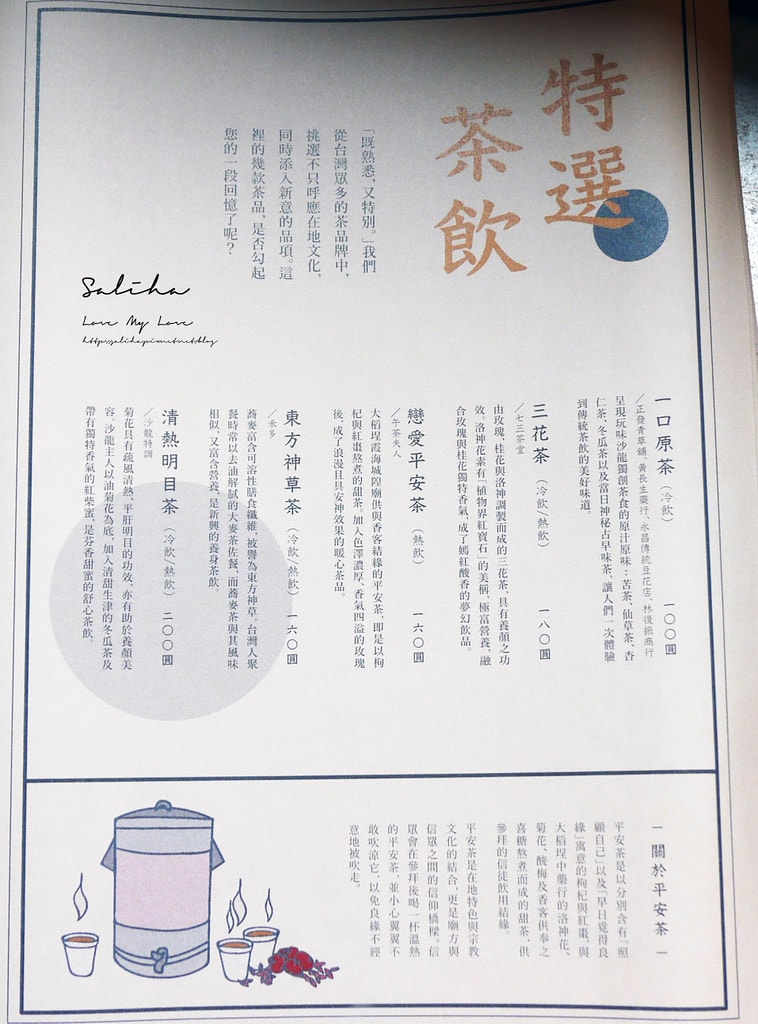 特選
茶飲
「既熟悉,又特別。」我們
從台灣眾多的茶品牌中,
挑選不只呼應在地文化,
同時添入新意的品項。這
裡的幾款茶品,是否勾起
您的一段回憶了呢?
Saliha
Love My Love
一口原茶(冷飲) 一〇〇圓
/正發青草舖、黃長生藥行、永昌傳統豆花店、林復振商行
呈現玩味沙龍獨創茶食的原汁原味:苦茶、仙草茶、杏
仁茶、冬瓜茶以及當日神秘古早味茶,讓人們一次體驗
到傳統茶飲的美好味道。
三花茶(冷飲/熱飲) 一八〇圓
/七三茶堂
由玫瑰、桂花與洛神調製而成的三花茶,具有養顏之功
效。洛神花素有「植物界紅寶石」的美稱,極富營養,融
合玫瑰與桂花獨特香氣,成了嫣紅酸香的夢幻飲品。
戀愛平安茶(熱飲) 一六〇圓
/午茶夫人
大稻埕霞海城隍廟供與香客結緣的平安茶,即是以枸
杞與紅棗熬煮的甜茶。加入色澤濃厚、香氣四溢的玫瑰
後,成了浪漫且具安神效果的暖心茶品。
東方神草茶(冷飲/熱飲) 一六〇圓
/禾多
蕎麥富含可溶性膳食纖維,被譽為東方神草。台灣人聚
餐時常以去油解膩的大麥茶佐餐,而蕎麥茶與其風味
相似,又富含營養,是新興的養身茶飲。
清熱明目茶(冷飲/熱飲) 二〇〇圓
/沙龍特調
菊花具有疏風清熱、平肝明目的功效,亦有助於養顏美
容。沙龍主人以油菊花為底,加入清甜生津的冬瓜茶及
帶有獨特香氣的紅柴蜜,是芬香甜蜜的舒心茶飲。
— 關於平安茶 —
平安茶是以分別含有「照
顧自己」以及「早日覓得良
緣」寓意的枸杞與紅棗,與
大稻埕中藥行的洛神花、
菊花、酸梅及香客供奉之
喜糖熬煮而成的甜茶,供
參拜的信徒飲用結緣。
平安茶是在地特色與宗教
文化的結合,更是廟方與
信眾之間的信仰橋樑。信
眾會在參拜後喝一杯溫熱
的平安茶,並小心翼翼不
敢吹涼它,以免良緣不經
意地被吹走。